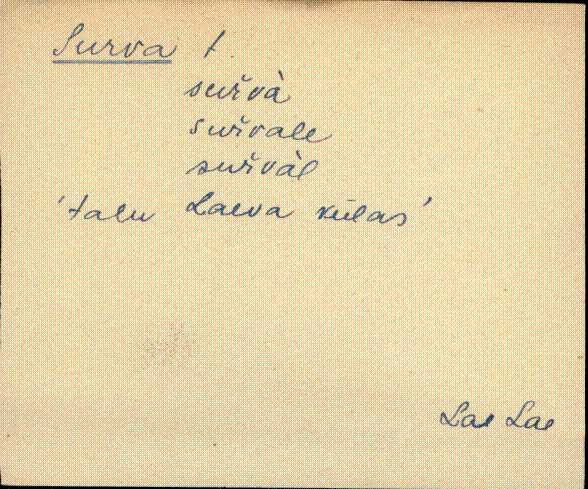 Surva t.
sur̆và
sur̆vale
sur̆vàl
'talu Laeva külas'
Lae Lae